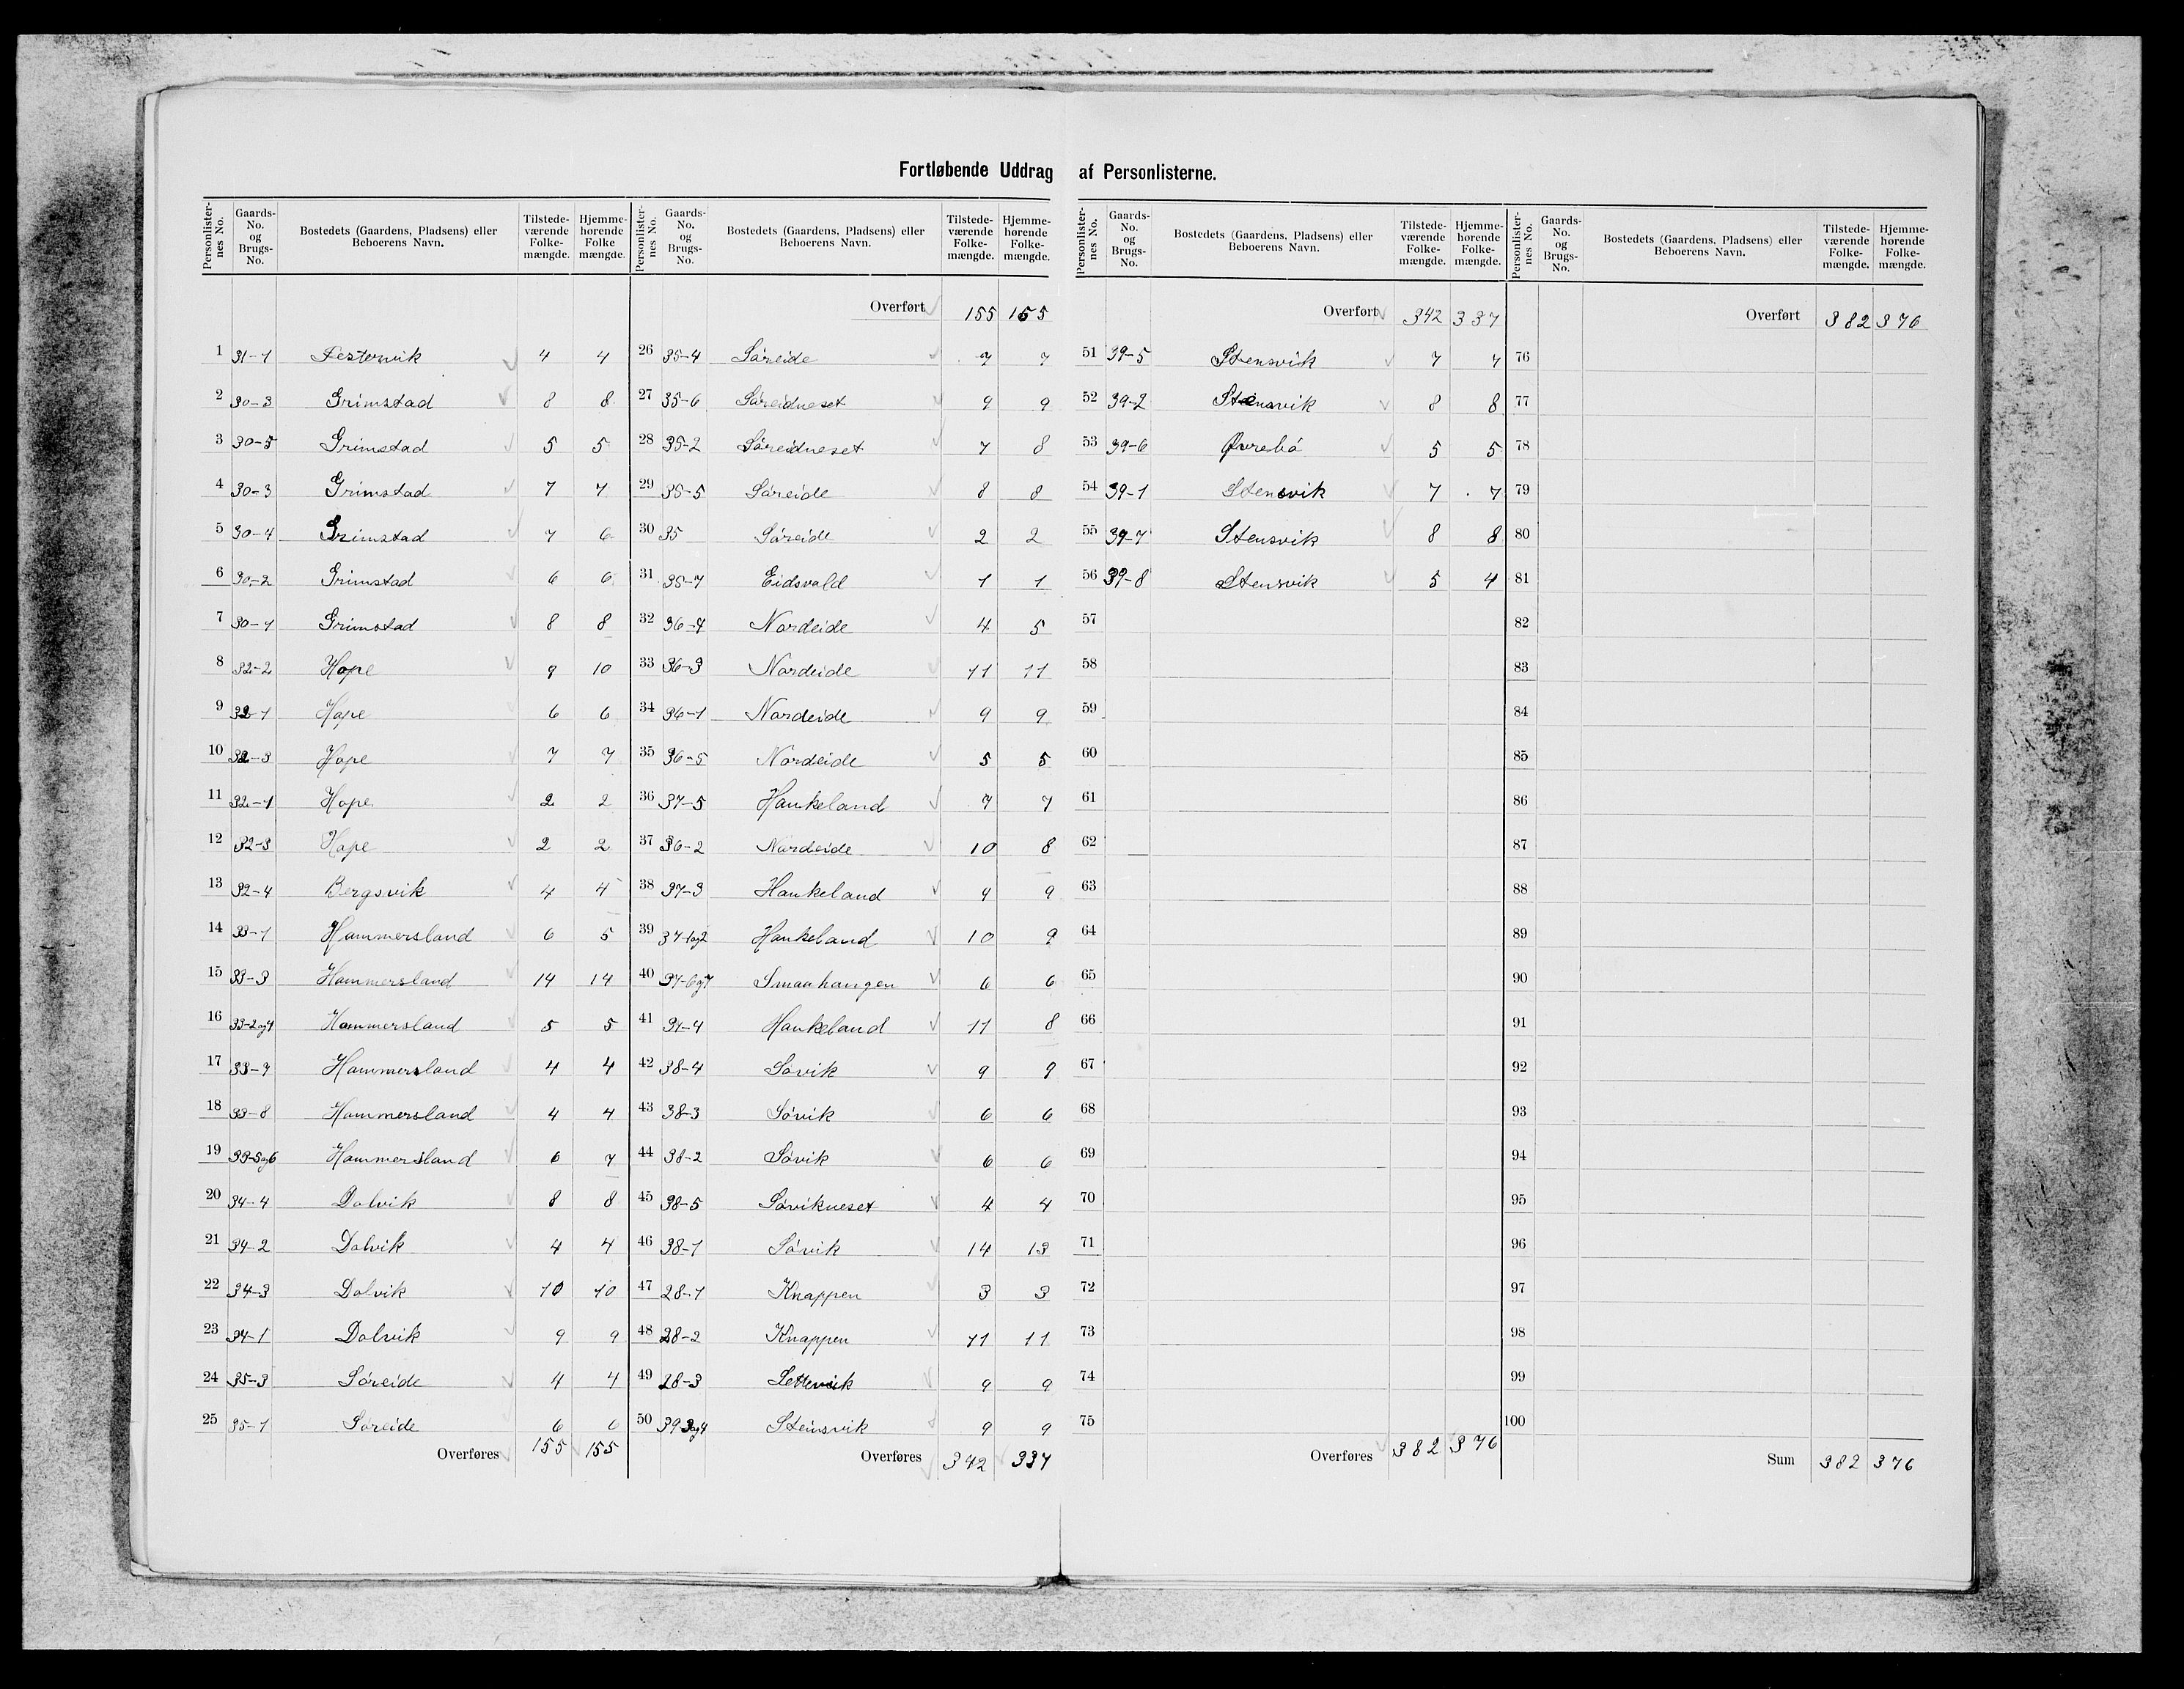 Fortløbende Uddrag af Personlisterne.
Personlisternes No. Gaards-No. og Brugs-No. Bostedets (Gaardens, Pladsens) eller Beboerens Navn. Tilstedeværende Folkemængde. Hjemmehørende Folkemængde.
1 31-1 Festervik 4 4
2 30-3 Grimstad 8 8
3 30-5 Grimstad 5 5
4 30-3 Grimstad 7 7
5 30-4 Grimstad 7 6
6 30-2 Grimstad 6 6
7 30-1 Grimstad 8 8
8 32-2 Hope 9 10
9 32-1 Hope 6 6
10 32-3 Hope 7 7
11 32-1 Hope 2 2
12 32-3 Hope 2 2
13 32-4 Bergsvik 4 4
14 33-1 Hammersland 6 5
15 33-3 Hammersland 14 14
16 33-2og4 Hammersland 5 5
17 33-7 Hammersland 4 4
18 33-8 Hammersland 4 4
19 33-5og6 Hammersland 6 7
20 34-4 Dalvik 8 8
21 34-2 Dalvik 4 4
22 34-3 Dalvik 10 10
23 34-1 Dalvik 9 9
24 35-3 Søreide 4 4
25 35-1 Søreide 6 6
Overføres 155 155
Personlisternes No. Gaards-No. og Brugs-No. Bostedets (Gaardens, Pladsens) eller Beboerens Navn. Tilstedeværende Folkemængde. Hjemmehørende Folkemængde.
Overført 155 155
26 35-4 Søreide 7 7
27 35-6 Søreidneset 9 9
28 35-2 Søreidneset 7 8
29 35-5 Søreide 8 8
30 35 Søreide 2 2
31 35-7 Eidsvald 1 1
32 36-4 Nordeide 4 5
33 36-3 Nordeide 11 11
34 36-1 Nordeide 9 9
35 36-5 Nordeide 5 5
36 37-5 Haukeland 7 7
37 36-2 Nordeide 10 8
38 37-3 Haukeland 9 9
39 37-1og2 Haukeland 10 9
40 37-6og7 Smaahaugen 6 6
41 37-4 Haukeland 11 8
42 38-4 Søvik 9 9
43 38-3 Søvik 6 6
44 38-2 Søvik 6 6
45 38-5 Søvikneset 4 4
46 38-1 Søvik 14 13
47 28-1 Knappen 3 3
48 28-2 Knappen 11 11
49 28-3 9 9
50 39 3og4 Stensvik 9 9
Overføres 342 337
Personlisternes No. Gaards-No. og Brugs-No. Bostedets (Gaardens, Pladsens) eller Beboerens Navn. Tilstedeværende Folkemængde. Hjemmehørende Folkemængde.
Overført 342 337
51 39-5 Stensvik 7 7
52 39-2 Stensvik 8 8
53 39-6 Øvrebø 5 5
54 39-1 Stensvik 7 7
55 39-7 Stensvik 8 8
56 39-8 Stensvik 5 4
57
58
59
60
61
62
63
64
65
66
67
68
69
70
71
72
73
74
75
Overføres 382 376
Personlisternes No. Gaards-No. og Brugs-No. Bostedets (Gaardens, Pladsens) eller Beboerens Navn. Tilstedeværende Folkemængde. Hjemmehørende Folkemængde.
Overført 382 376
76
77
78
79
80
81
82
83
84
85
86
87
88
89
90
91
92
93
94
95
96
97
98
99
100
Sum 382 376